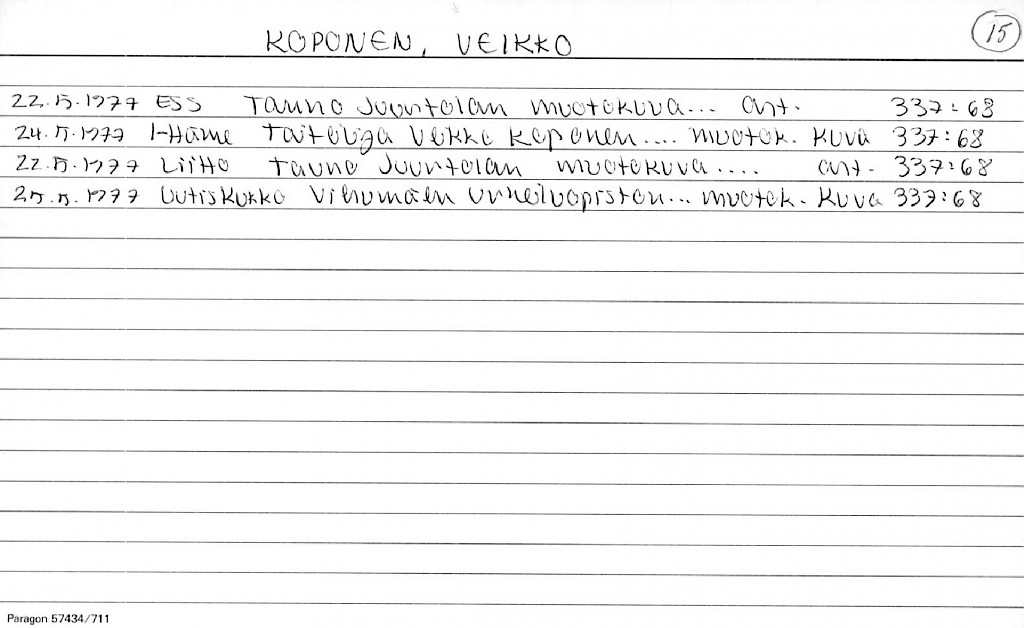 KOPONEN, VEIKKO
15
22.5.1977 ESS Tauno Juurtolan muotokuva... art. 337:68
24.5.1977 I-Häme Taiteilija Veikko Koponen.... muotok. kuva 337:68
22.5.1977 Liitto Tauno Juurtolan muotokuva.... art. 337:68
25.5.1977 Uutiskukko Vihumäen urheiluopiston... muotok. kuva 337:68
Paragon 57434/711